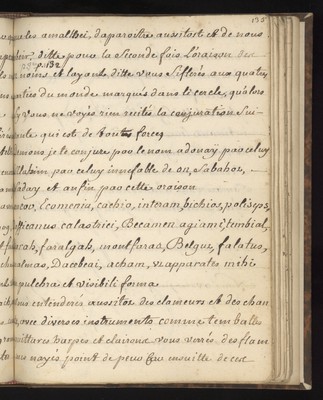 135
quales amalthei, daparoitre aussitost et de nous
ditte pour la seconde fois l'oraison des
p. 132
noms et layant ditte vous sifflerés aux quatre
parties du monde marqués dans le cercle, qualors
vous ne voyés rien recités la conjuration sui-
qui est de toutes forces
je te conjure par le nom adonay par celuy
par celuy innefable de on, Sabahot,
saday et anfin par cette oraison
Ecomenus, cachio, interam, bichios, poliseps,
calastrici, Becamen, agiami, tembial,
farilgah, montsaras, Belgus, falatus,
Dacebeai, acham, vt apparates mihi
pulchra et visibili forma
entenderés aussitot des clameurs et des chan
avec diverses instruments comme tembales
harpes et clairons vous verés des flam
nayés point de peur Car ensuitte de ces